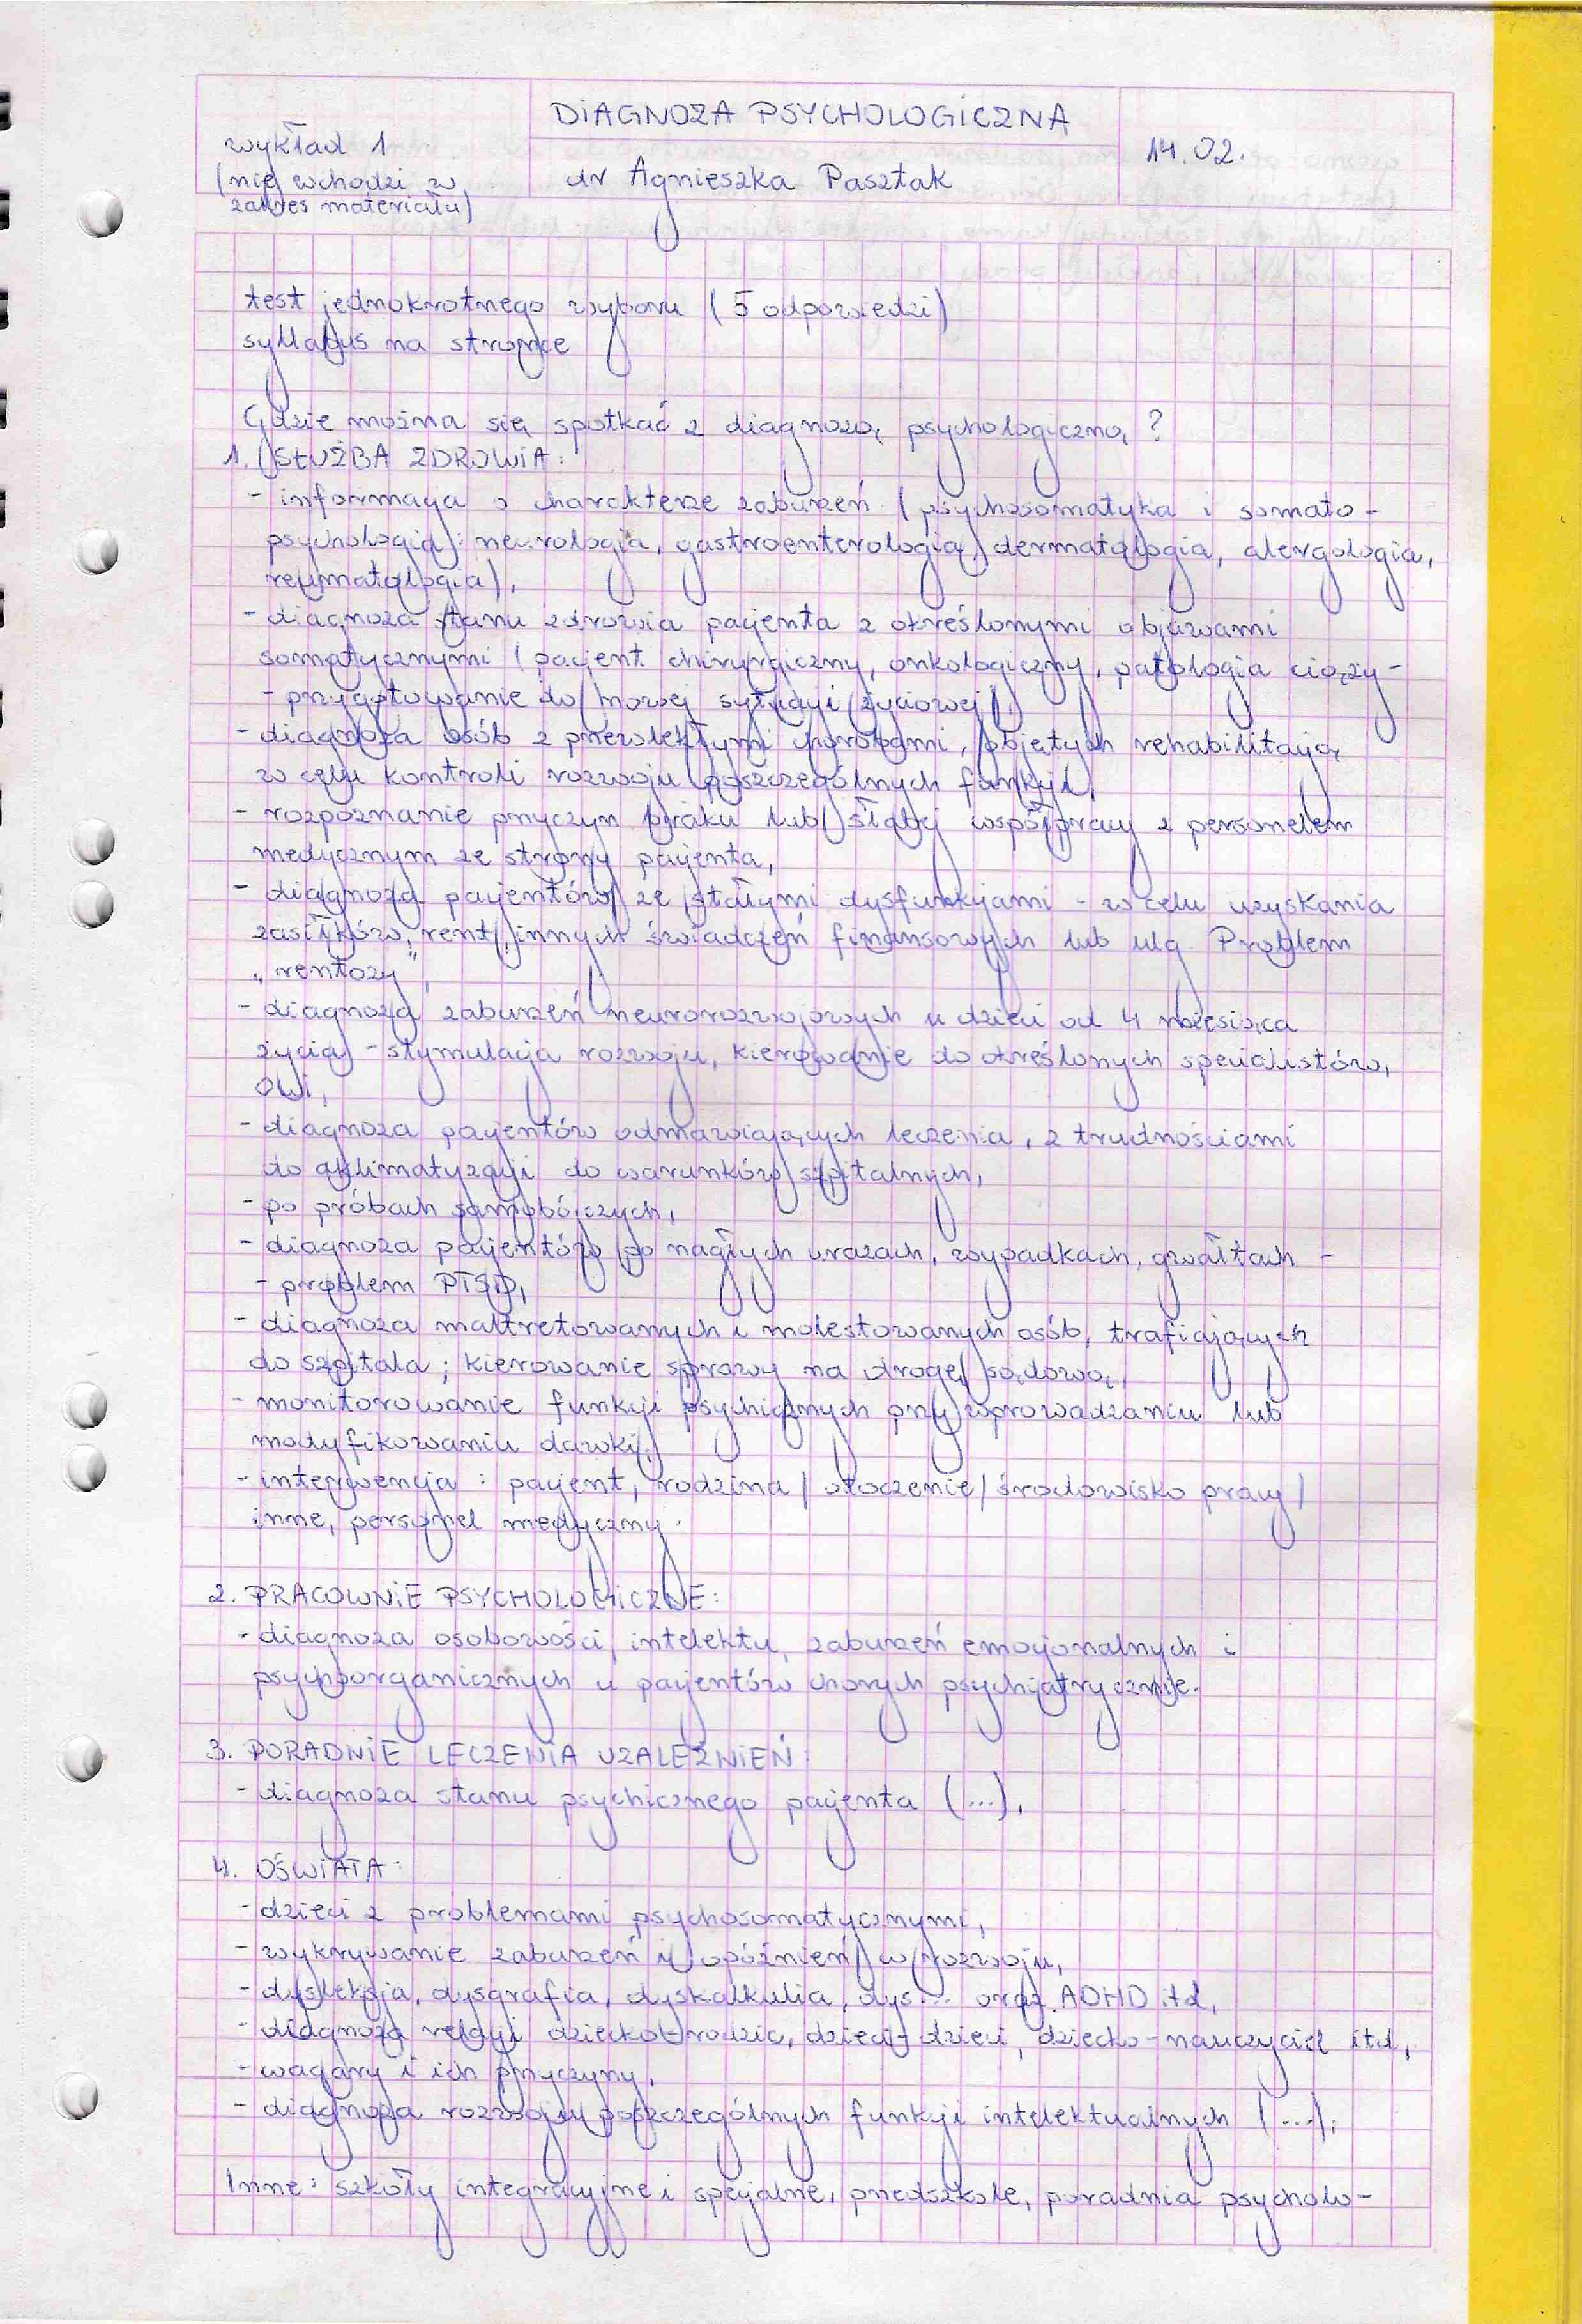 DIAGNOZA PSYCHOLOGICZNA
wykład 1
(nie wchodzi w
zakres materiału)
dr Agnieszka Pasztak
14.02.
test jednokrotnego wyboru (5 odpowiedzi)
syllabus na stronce
Gdzie można się spotkać z diagnozą psychologiczną?
1. SŁUŻBA ZDROWIA:
- informacja o charakterze zaburzeń (psychosomatyka i somato-
psychologia: neurologia, gastroenterologia, dermatologia, alergologia,
reumatologia),
- diagnoza stanu zdrowia pacjenta z określonymi objawami
somatycznymi (pacjent chirurgiczny, onkologiczny, patologia ciąży -
- przygotowanie do nowej sytuacji życiowej),
- diagnoza osób z przewlekłymi chorobami, objętych rehabilitacją
w celu kontroli rozwoju poszczególnych funkcji,
- rozpoznanie przyczyn braku lub słabej współpracy z personelem
medycznym ze strony pacjenta,
- diagnoza pacjentów ze stałymi dysfunkcjami - w celu uzyskania
zasiłków, rent, innych świadczeń finansowych lub ulg. Problem
"rentozy",
- diagnoza zaburzeń neurorozwojowych u dzieci od 4 miesiąca
życia - stymulacja rozwoju, kierowanie do określonych specjalistów,
OWI,
- diagnoza pacjentów odmawiających leczenia, z trudnościami
do aklimatyzacji do warunków szpitalnych,
- po próbach samobójczych,
- diagnoza pacjentów po nagłych urazach, wypadkach, gwałtach -
- problem PTSD,
- diagnoza maltretowanych i molestowanych osób, trafiających
do szpitala; kierowanie sprawy na drogę sądową,
- monitorowanie funkcji psychicznych przy wprowadzaniu lub
modyfikowaniu dawki,
- interwencja: pacjent, rodzina / otoczenie / środowisko pracy /
inne, personel medyczny.
2. PRACOWNIE PSYCHOLOGICZNE:
- diagnoza osobowości, intelektu, zaburzeń emocjonalnych i
psychoorganicznych u pacjentów chorych psychiatrycznie.
3. PORADNIE LECZENIA UZALEŻNIEŃ:
- diagnoza stanu psychicznego pacjenta (...),
4. OŚWIATA:
- dzieci z problemami psychosomatycznymi,
- wykrywanie zaburzeń i opóźnień w rozwoju,
- dysleksja, dysgrafia, dyskalkulia, dys... oraz ADHD itd,
- diagnoza relacji dziecko-rodzic, dzieci-dzieci, dziecko-nauczyciel itd,
- wagary i ich przyczyny,
- diagnoza rozwoju poszczególnych funkcji intelektualnych (...),
Inne: szkoły integracyjne i specjalne, przedszkole, poradnia psycholo-